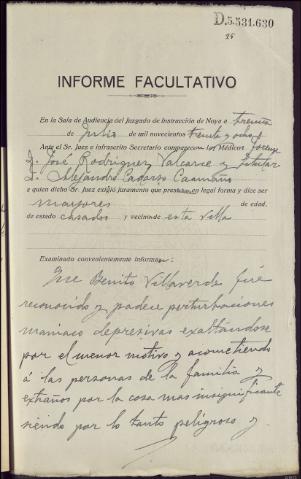 D.5.531.630
25
INFORME FACULTATIVO
En la Sala de Audiencia del Juzgado de Instrucción de Noya a treinta
de Julio de mil novecientos treinta y ocho
Ante el Sr. Juez e infrascrito Secretario comparecen los Médicos forense
D. José Rodríguez Valcarce y titular
D. Alejandro Cadarso Caamaño
a quien dicho Sr. Juez exigió juramento que prestan en legal forma y dice ser
mayores de edad,
de estado casados y vecino de esta Villa
Examinado convenientemente informa:
Que Benito Villaverde fué
reconocido y padece perturbaciones
maniaco depresivas exaltándose
por el menor motivo y acometiendo
á las personas de la familia y
extraños por la cosa mas insignificante
siendo por lo tanto peligroso y